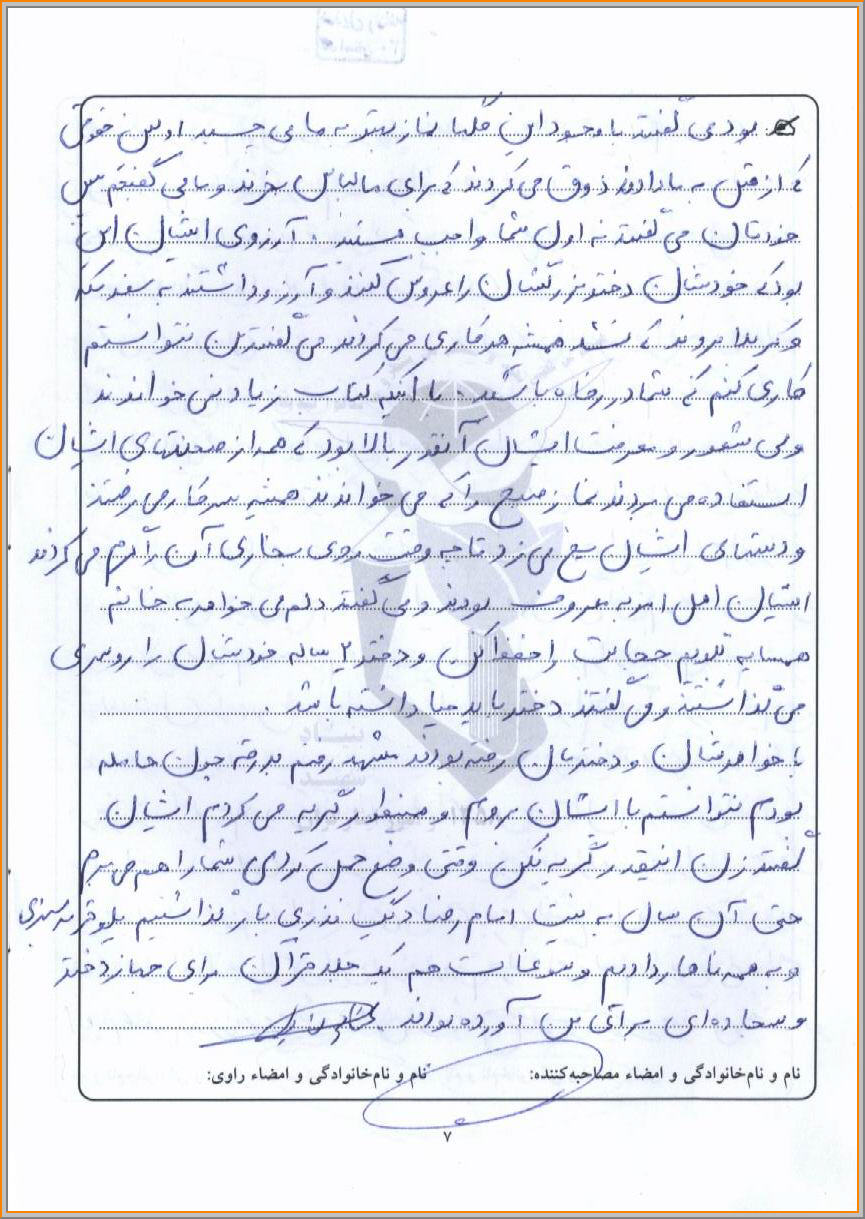 بود می گفتند با وجود این گلها نماز بهتر به ما می چسبد اولین حقوقی
که از قبل به ما دادند ذوق می کردند که برای ما لباس بخرند و ما می گفتیم پس
خودتان می گفتند نه اول شما واجب هستید. آرزوی ایشان این
بود که خودشان دختر بزرگشان را عروس کنند و آرزو داشتند به سفر مکه
و کربلا بروند که نشد همیشه هر کاری می کردند می گفتند من نتوانستم
کاری کنم که شما در رفاه باشید. با اینکه کتاب زیاد نمی خواندند
ولی شعور و معرفت ایشان آنقدر بالا بود که همه از صحبتهای ایشان
استفاده می بردند نماز صبح را که می خواندند همیشه سر کار می رفتند
و دستهای ایشان یخ می زد تا چه وقت روی بخاری آن را گرم می کردند
ایشان اهل امر به معروف بودند و می گفتند دلم می خواهد به خانم
همسایه بگویم حجابت را حفظ کن و دختر ۲ ساله خودشان را روسری
می گذاشتند و می گفتند دختر باید حیا داشته باشد.
با خواهرشان و دخترمان رفته بودند مشهد من چون حامله
بودم نتوانستم با ایشان بروم و همینطور گریه می کردم ایشان
گفتند زن اینقدر گریه نکن وقتی وضع حمل کردی شما را هم می برم
حتی آن سال به نیت امام رضا دیگ نذری بار گذاشتیم پلو قرمه سبزی
و به همه ناهار دادیم و سوغات هم یک جلد قرآن برای جهاز دختر
و سجاده ای برای من آورده بودند.
نام و نام‌خانوادگی و امضاء مصاحبه‌کننده: نام و نام‌خانوادگی و امضاء راوی:
۷